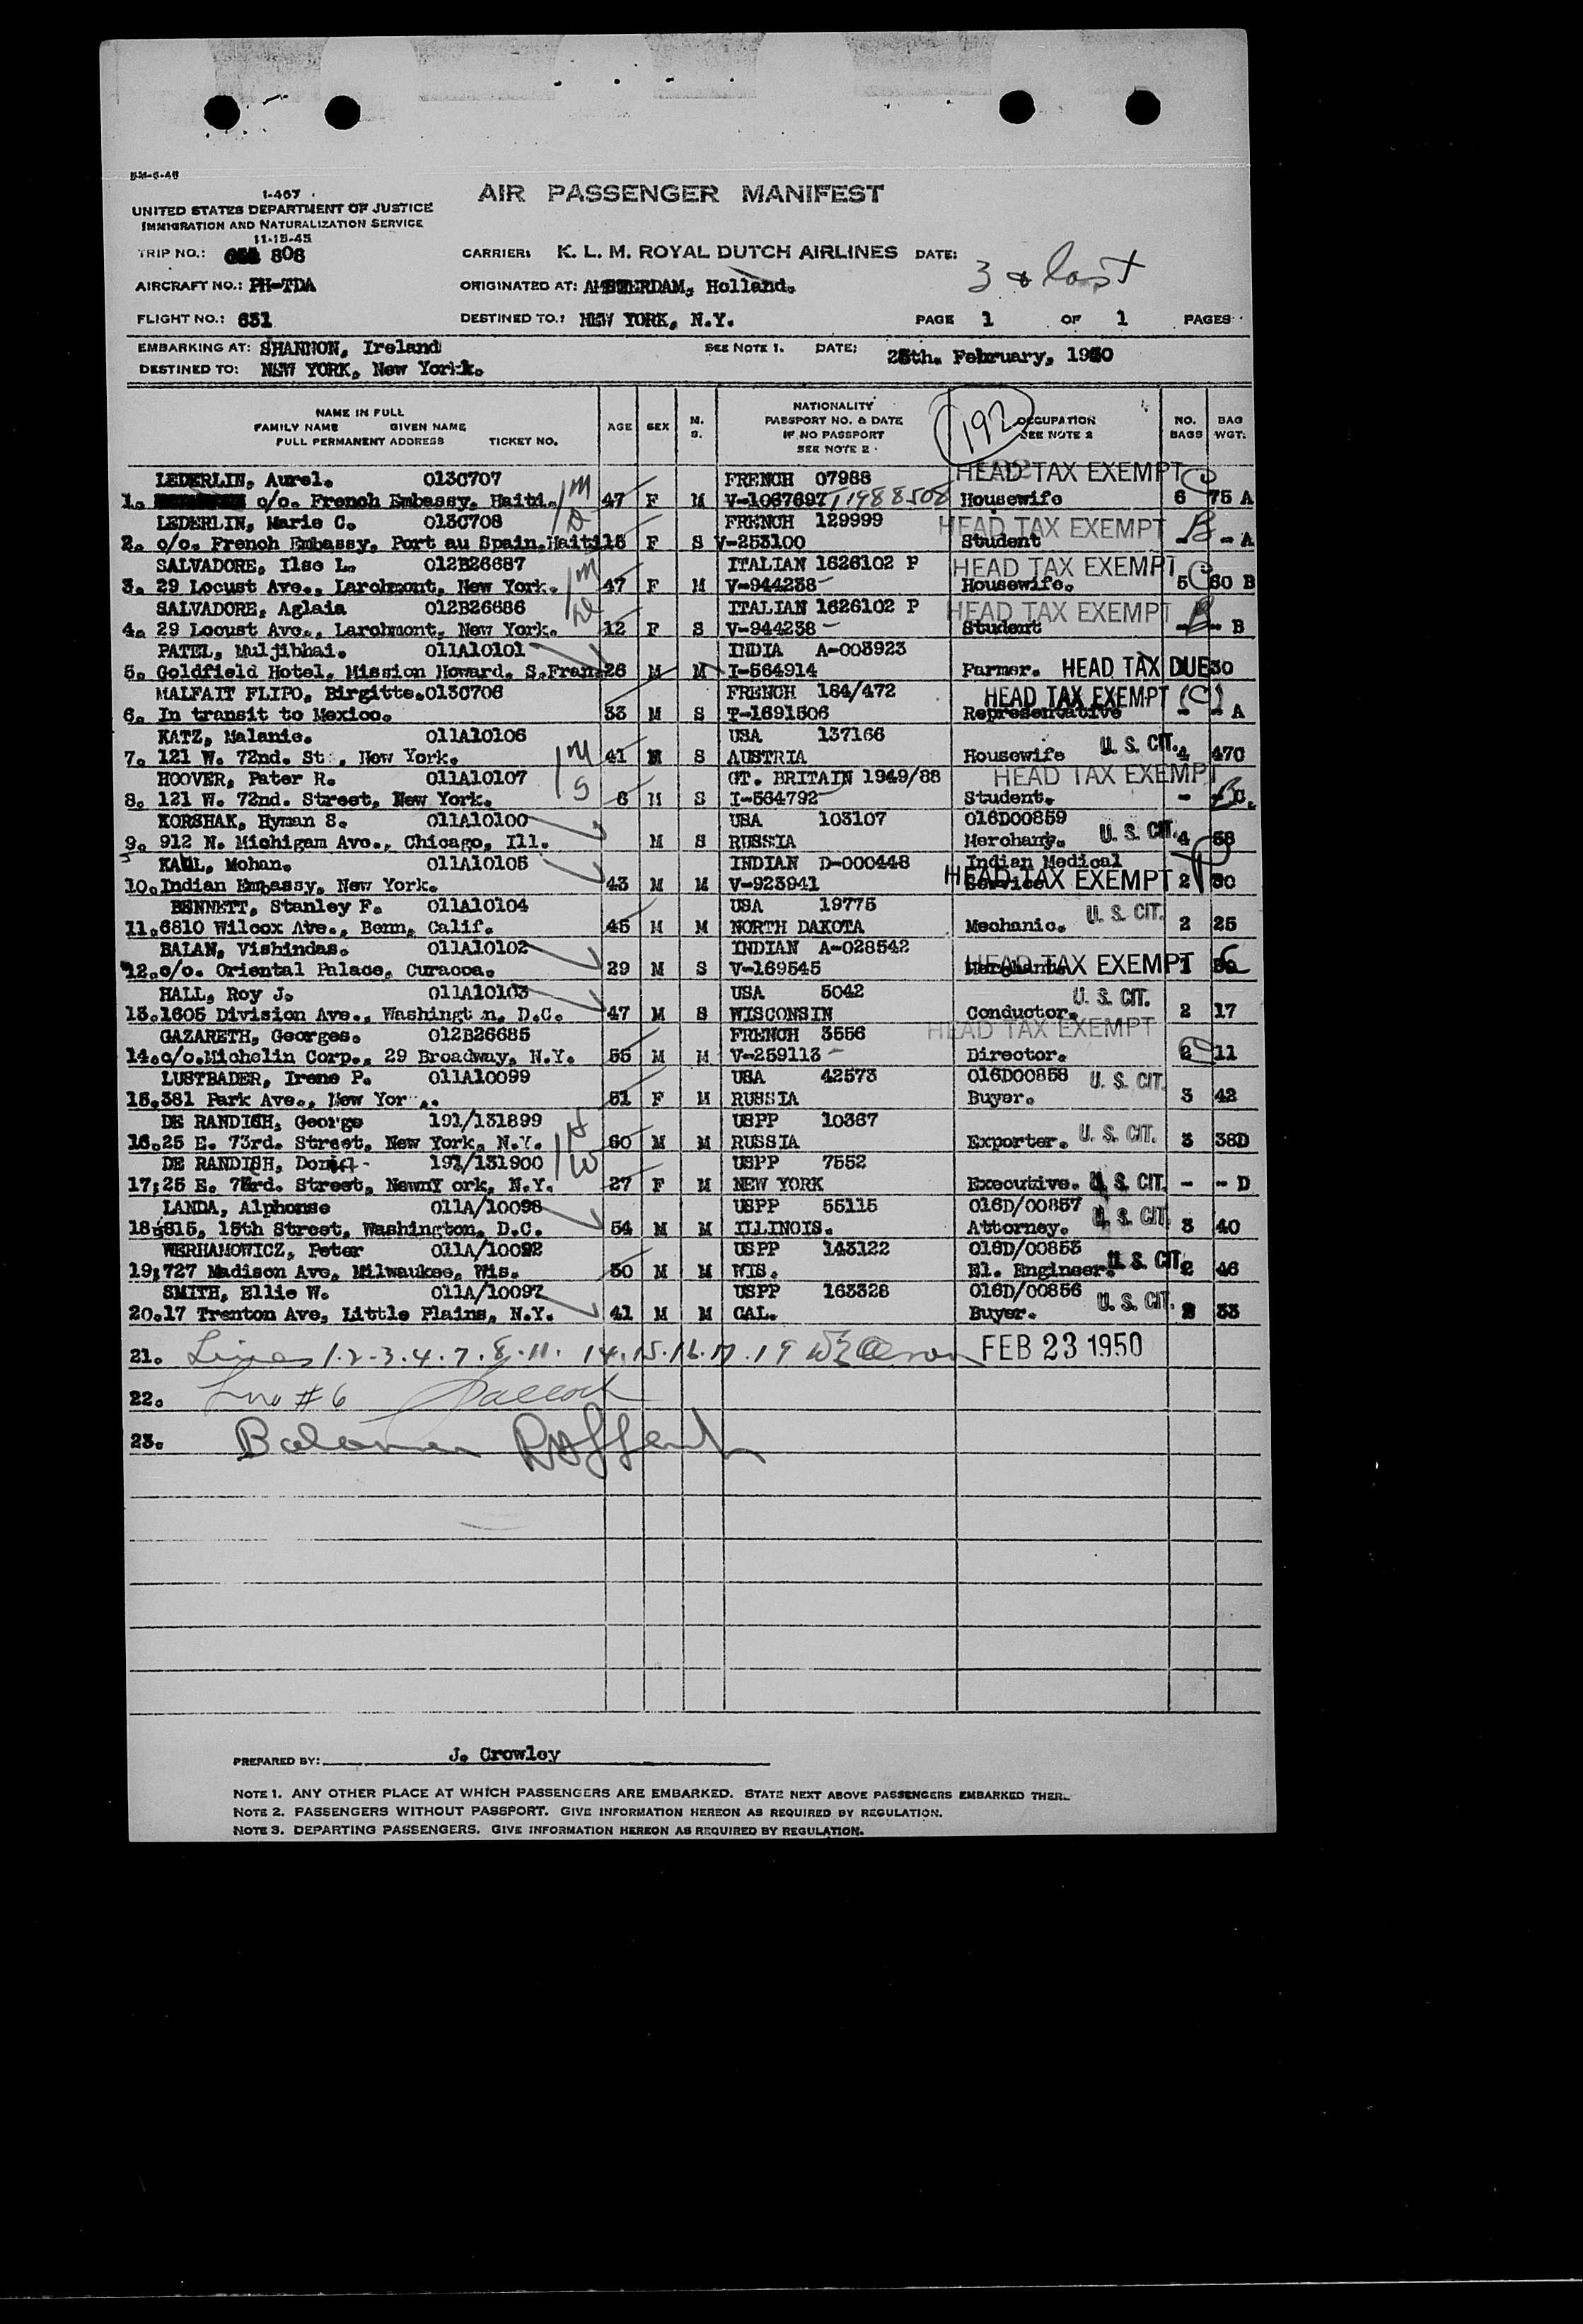 1-467
UNITED STATES DEPARTMENT OF JUSTICE
IMMIGRATION AND NATURALIZATION SERVICE
11-15-45
AIR PASSENGER MANIFEST
TRIP NO.: 808 CARRIER: K. L. M. ROYAL DUTCH AIRLINES DATE:
3 & last
AIRCRAFT NO.: PH-TDA ORIGINATED AT: AMSTERDAM, Holland.
FLIGHT NO.: 631 DESTINED TO.: NEW YORK, N.Y. PAGE 1 OF 1 PAGES
EMBARKING AT: SHANNON, Ireland SEE NOTE 1. DATE: February, 1950
DESTINED TO: NEW YORK, New York.
NAME IN FULL
FAMILY NAME GIVEN NAME
FULL PERMANENT ADDRESS TICKET NO.
AGE SEX M. S.
NATIONALITY
PASSPORT NO. & DATE
IF NO PASSPORT
SEE NOTE 2
192
OCCUPATION
SEE NOTE 2
NO. BAGS BAG WGT.
LEDERLIN, Aurel. 013C707 FRENCH 07988 HEAD TAX EXEMPT
1. c/o. French Embassy, Haiti. 47 F M V-1067697 Housewife 6 75 A
LEDERLIN, Marie C. 013C708 FRENCH 129999 HEAD TAX EXEMPT B
2. c/o. French Embassy, Port au Spain, Haiti 15 F S V-253100 Student - - A
SALVADORE, Ilse L. 012B26687 ITALIAN 1626102 P HEAD TAX EXEMPT
3. 29 Locust Ave., Larchmont, New York. 47 F M V-944238 Housewife. 5 60 B
SALVADORE, Aglaia 012B26686 ITALIAN 1626102 P HEAD TAX EXEMPT
4. 29 Locust Ave., Larchmont, New York. 12 F S V-944238 Student - - B
PATEL, Muljibhai. 011A10101 INDIA A-003923
5. Goldfield Hotel, Mission Howard, S.Fran. 26 M M I-564914 Farmer. HEAD TAX DUE 30
MALFAIT FLIPO, Birgitte. 013C706 FRENCH 184/472 HEAD TAX EXEMPT
6. In transit to Mexico. 33 M S T-1691506 Representative - - A
KATZ, Malanie. 011A10106 USA 137166 U. S. CIT.
7. 121 W. 72nd. St., New York. 41 S AUSTRIA Housewife 4 47C
HOOVER, Pater R. 011A10107 GT. BRITAIN 1949/88 HEAD TAX EXEMPT
8. 121 W. 72nd. Street, New York. 6 M S I-564792 Student. - - C.
KORSHAK, Hyman S. 011A10100 USA 103107 016D00859
9. 912 N. Michigam Ave., Chicago, Ill. M S RUSSIA Merchant. U. S. CIT. 4 58
KAUL, Mohan. 011A10105 INDIAN D-000448 Indian Medical
10. Indian Embassy, New York. 43 M M V-923941 Service HEAD TAX EXEMPT 2 30
BENNETT, Stanley F. 011A10104 USA 19775 U. S. CIT.
11. 6810 Wilcox Ave., Benn, Calif. 45 M M NORTH DAKOTA Mechanic. 2 25
BALAN, Vishindas. 011A10102 INDIAN A-028542
12. c/o. Oriental Palace, Curacoa. 29 M S V-169545 HEAD TAX EXEMPT 1
HALL, Roy J. 011A10103 USA 5042 U. S. CIT.
13. 1605 Division Ave., Washingt n, D.C. 47 M S WISCONSIN Conductor. 2 17
GAZARETH, Georges. 012B26685 FRENCH 3556 HEAD TAX EXEMPT
14. c/o.Michelin Corp., 29 Broadway, N.Y. 55 M M V-259113 Director. 2 11
LUSTBADER, Irene P. 011A10099 USA 42573 016D00858 U. S. CIT.
15. 381 Park Ave., New Yor . 51 F M RUSSIA Buyer. 3 42
DE RANDICH, George 191/131899 USPP 10367
16. 25 E. 73rd. Street, New York, N.Y. 60 M M RUSSIA Exporter. U. S. CIT. 3 38D
DE RANDICH, 191/131900 USPP 7552
17. 25 E. 73rd. Street, NewnY ork, N.Y. 27 F M NEW YORK Executive. U. S. CIT. - - D
LANDA, Alphonse 011A/10098 USPP 55115 016D/00857
18. 815, 15th Street, Washington, D.C. 54 M M ILLINOIS. Attorney. U. S. CIT. 3 40
WERHANOWICZ, Peter 011A/10092 USPP 143122 016D/00853
19. 727 Madison Ave, Milwaukee, Wis. 30 M M WIS. El. Engineer. U. S. CIT. 2 46
SMITH, Ellie W. 011A/10097 USPP 163328 016D/00856
20. 17 Trenton Ave, Little Plains, N.Y. 41 M M CAL. Buyer. U. S. CIT. 2 33
21. Lines 1.2-3.4.7.8.11. 14.15.16.17.19 FEB 23 1950
22. Line #6
23.
PREPARED BY: J. Crowley
NOTE 1. ANY OTHER PLACE AT WHICH PASSENGERS ARE EMBARKED. STATE NEXT ABOVE PASSENGERS EMBARKED THER..
NOTE 2. PASSENGERS WITHOUT PASSPORT. GIVE INFORMATION HEREON AS REQUIRED BY REGULATION.
NOTE 3. DEPARTING PASSENGERS. GIVE INFORMATION HEREON AS REQUIRED BY REGULATION.